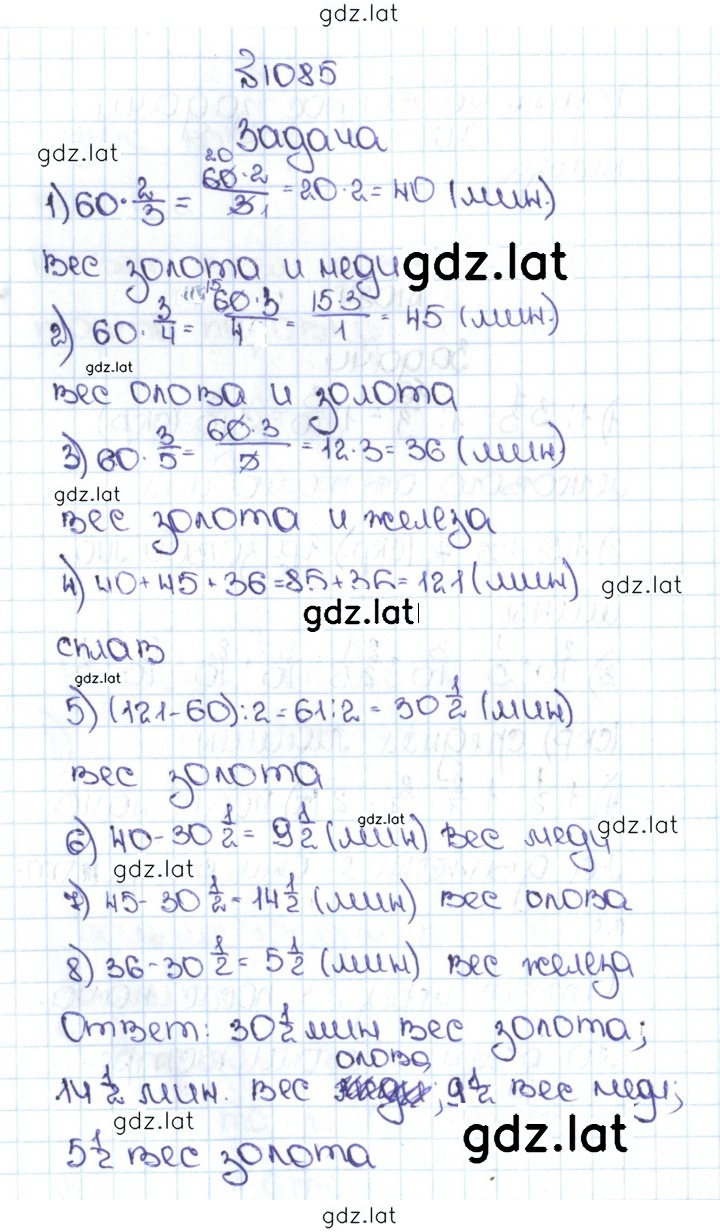 gdz.lat
№1085
Задача
gdz.lat
1) 60·2/3 = 60·2/3 = 20·2 = 40 (мин.)
20
1
вес золота и меди
gdz.lat
2) 60·3/4 = 60·3/4 = 15·3/1 = 45 (мин.)
15
gdz.lat
вес олова и золота
3) 60·3/5 = 60·3/5 = 12·3 = 36 (мин)
gdz.lat
вес золота и железа
4) 40+45+36=85+36=121 (мин)
gdz.lat
gdz.lat
сплав
gdz.lat
5) (121-60):2=61:2=30 1/2 (мин)
вес золота
6) 40-30 1/2= 9 1/2 (мин) вес меди
gdz.lat
gdz.lat
gdz.lat
7) 45-30 1/2=14 1/2 (мин) вес олова
8) 36-30 1/2= 5 1/2 (мин) вес железа
Ответ: 30 1/2 мин вес золота;
олова
14 1/2 мин. вес ; 9 1/2 вес меди;
gdz.lat
gdz.lat
5 1/2 вес золота
gdz.lat